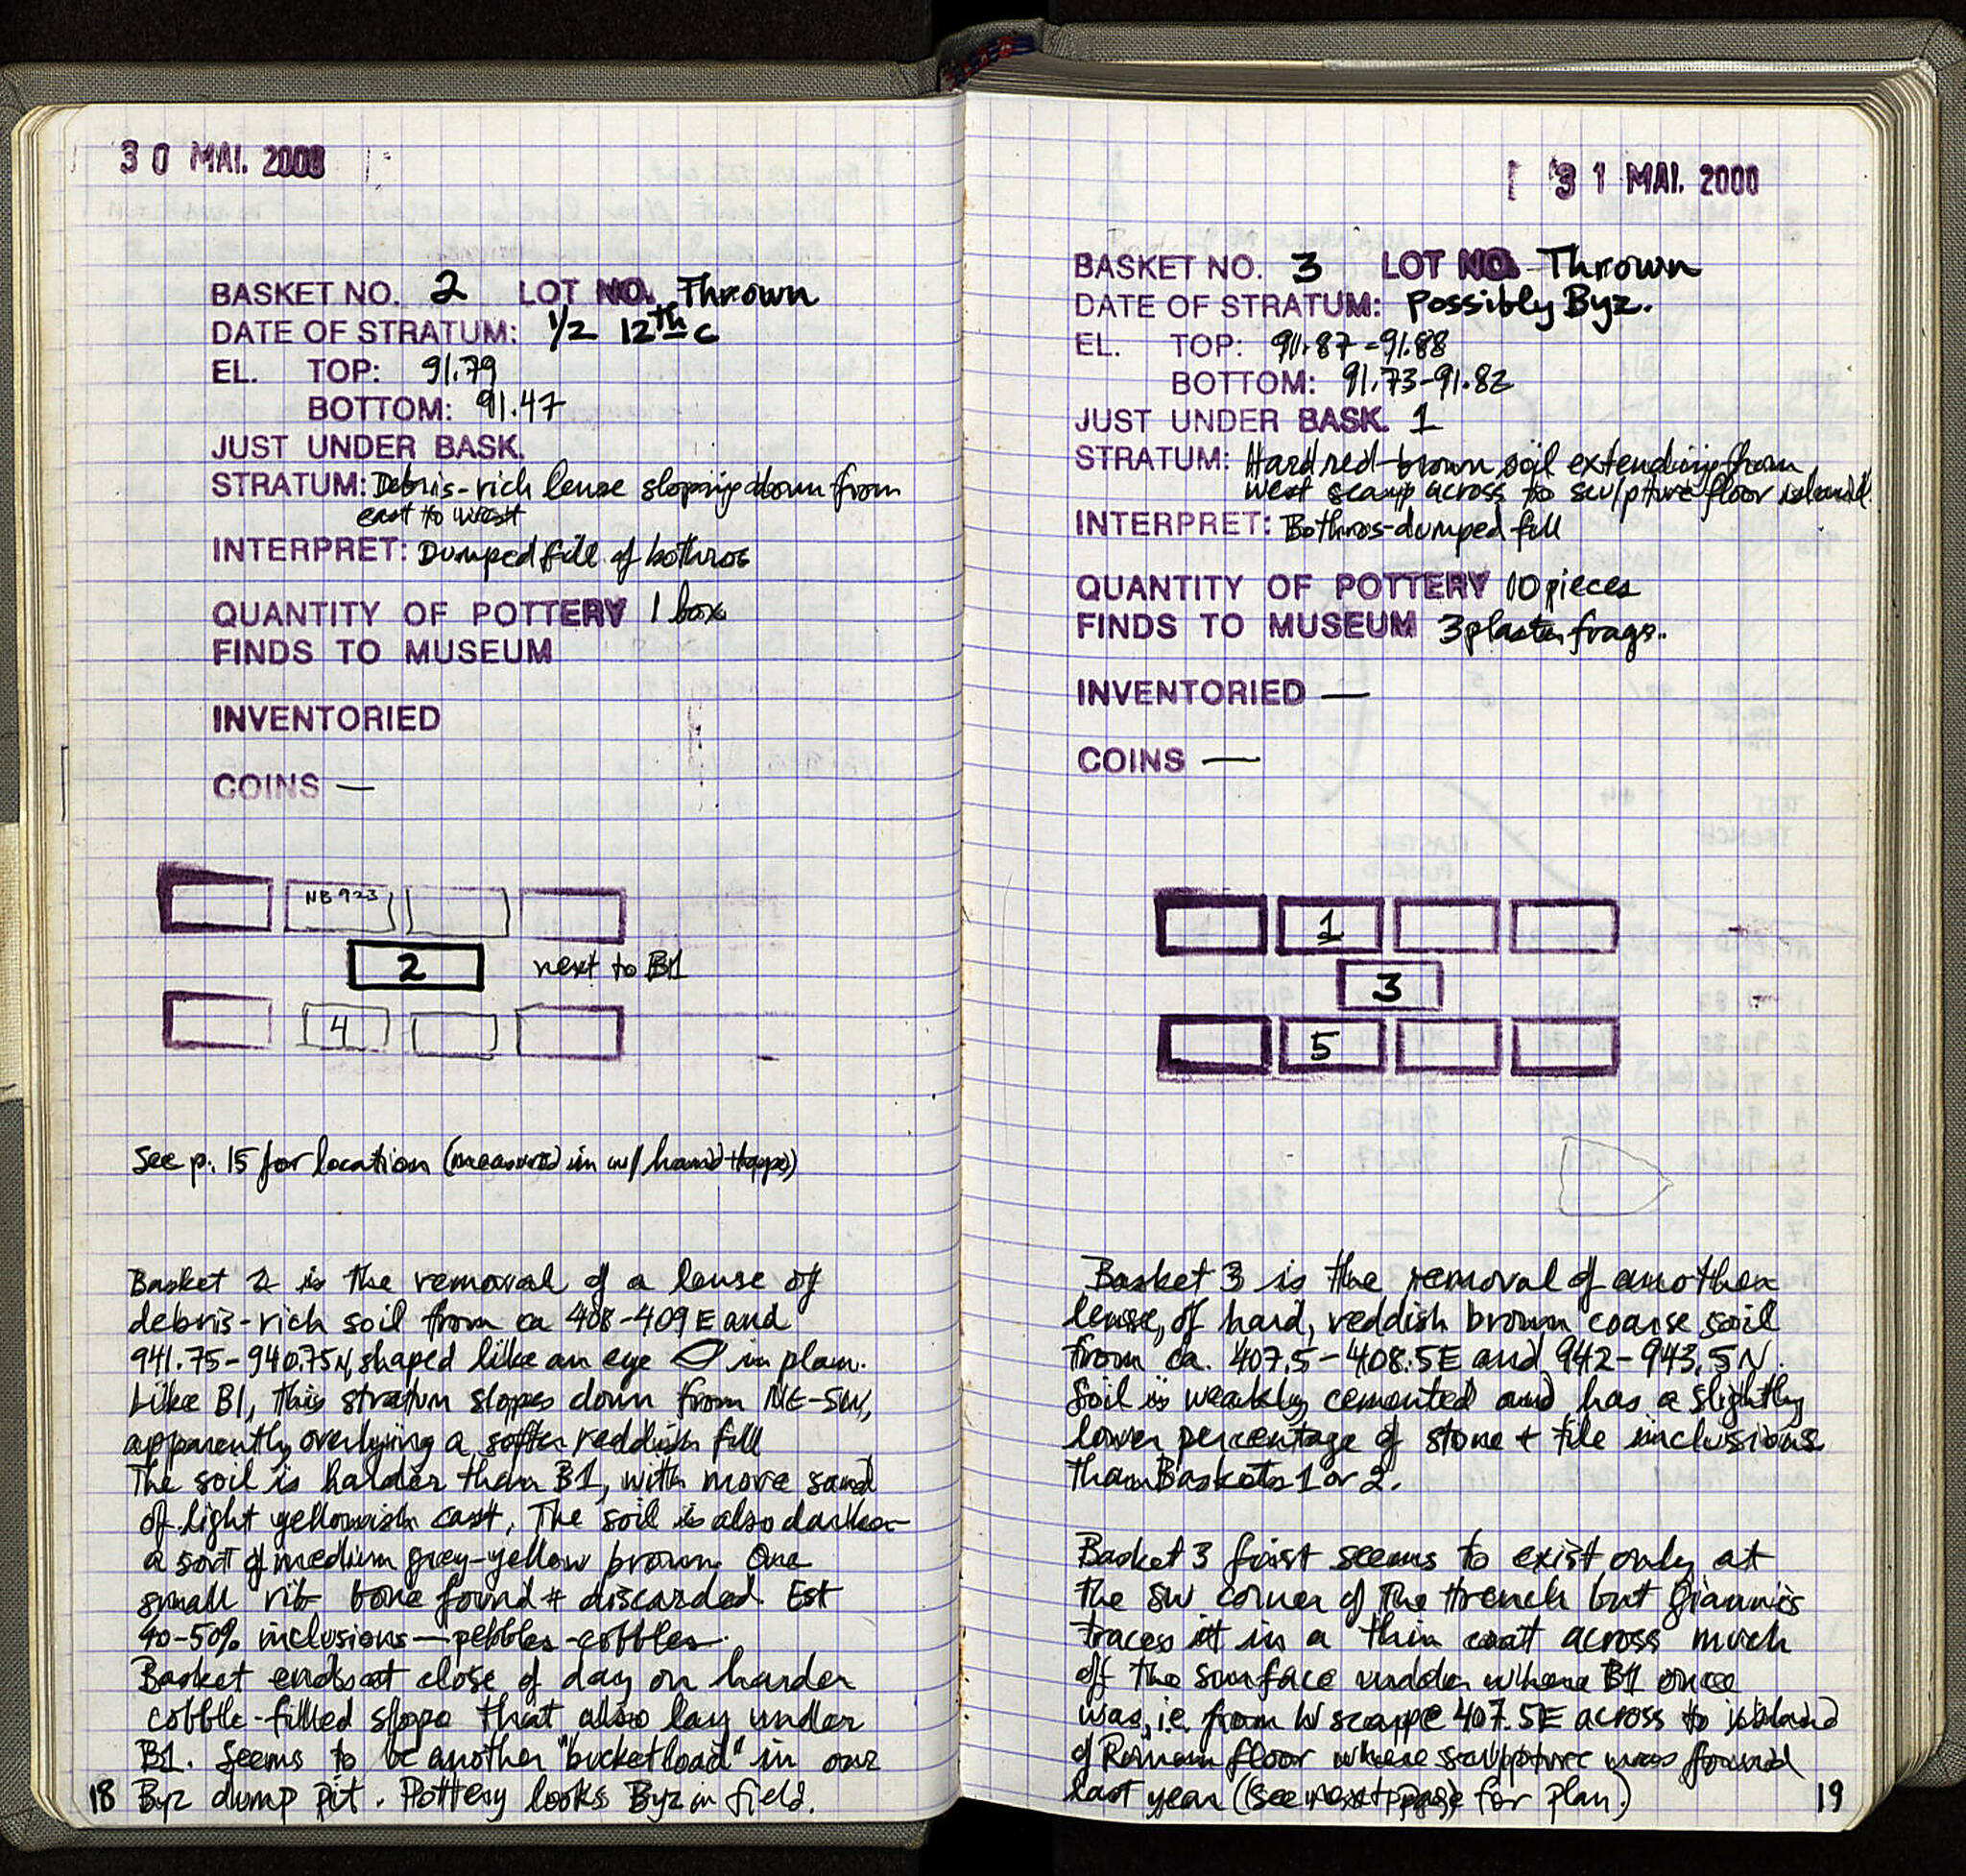 30 MAI. 2000
BASKET NO. 2 LOT NO. Thrown
DATE OF STRATUM: 1/2 12th c
EL. TOP: 91.79
BOTTOM: 91.47
JUST UNDER BASK.
STRATUM: Debris-rich lense sloping down from
east to west
INTERPRET: Dumped fill of bothros
QUANTITY OF POTTERY 1 box
FINDS TO MUSEUM
INVENTORIED
COINS —
NB 923
2 next to B1
4
See p. 15 for location (measured in w/ hand tape)
Basket 2 is the removal of a lense of
debris-rich soil from ca 408-409 E and
941.75-940.75N, shaped like an eye in plan.
Like B1, this stratum slopes down from NE-SW,
apparently overlying a softer reddish fill
The soil is harder than B1, with more sand
of light yellowish cast. The soil is also darker-
a sort of medium grey-yellow brown. One
small rib bone found + discarded. Est
40-50% inclusions—pebbles-cobbles.
Basket ends at close of day on harder
cobble-filled slope that also lay under
B1. Seems to be another "bucketload" in our
Byz dump pit. Pottery looks Byz in field.
18
31 MAI. 2000
BASKET NO. 3 LOT NO. Thrown
DATE OF STRATUM: Possibly Byz.
EL. TOP: 91.87-91.88
BOTTOM: 91.73-91.82
JUST UNDER BASK. 1
STRATUM: Hard red-brown soil extending from
west scarp across to sculpture floor island
INTERPRET: Bothros-dumped fill
QUANTITY OF POTTERY 10 pieces
FINDS TO MUSEUM 3 plaster frags.
INVENTORIED —
COINS —
1
3
5
Basket 3 is the removal of another
lense, of hard, reddish brown coarse soil
from ca. 407.5-408.5E and 942-943.5N.
Soil is weakly cemented and has a slightly
lower percentage of stone + tile inclusions
than Baskets 1 or 2.
Basket 3 first seems to exist only at
the SW corner of the trench but Giannis
traces it in a thin coat across much
of the surface under where B1 once
was, i.e. from W scarpe 407.5E across to island
of Roman floor where sculpture was found
last year (see next page for plan.)
19